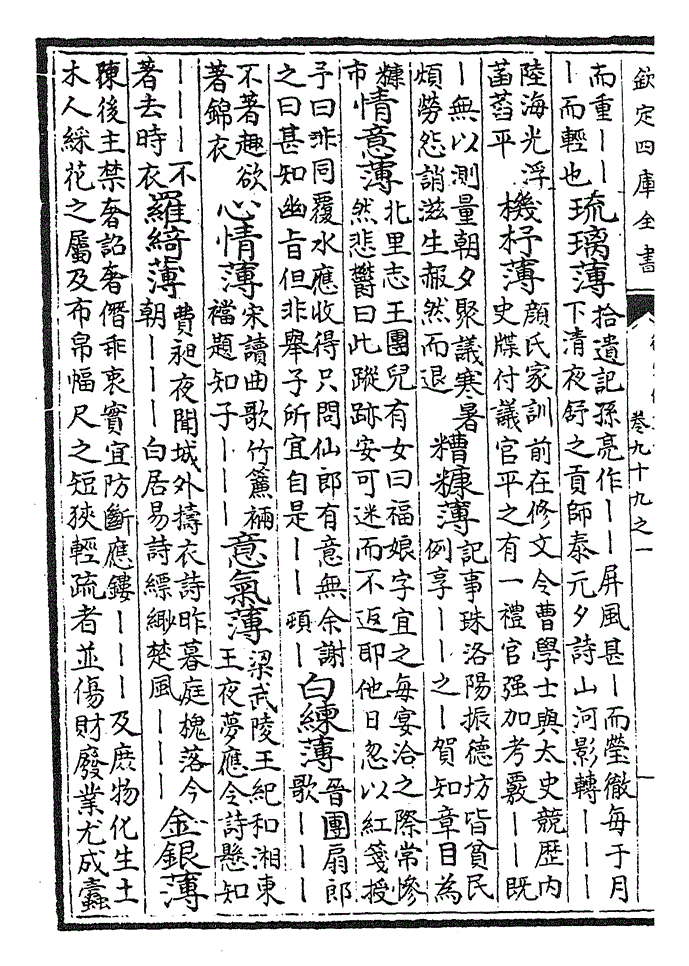 欽定四庫全書
卷九十九之一
而重｜｜
｜而輕也
琉璃薄
拾遺記孫亮作｜｜屏風甚｜而瑩徹每于月
下清夜舒之貢師泰元夕詩山河影轉｜｜｜
陸海光浮
菡萏平
機杼薄
顔氏家訓前在修文令曹學士與太史競歷内
史牒付議官平之有一禮官强加考覈｜｜既
｜無以測量朝夕聚議寒暑
煩勞怨誚滋生赧然而退
糟糠薄
記事珠洛陽振德坊皆貧民
例享｜｜之｜賀知章目為
糠
市
情意薄
北里志王團兒有女曰福娘字宜之每宴洽之際常慘
然悲鬱曰此蹤跡安可迷而不返耶他日忽以紅箋授
予曰非同覆水應收得只問仙郎有意無余謝
之曰甚知幽旨但非舉子所宜自是｜｜頓｜
白練薄
晉團扇郎
歌｜｜｜
不著趣欲
著錦衣
心情薄
宋讀曲歌竹簾裲
襠題知子｜｜｜
意氣薄
梁武陵王紀和湘東
王夜夢應令詩懸知
｜｜｜不
著去時衣
羅綺薄
費昶夜聞城外擣衣詩昨暮庭槐落今
朝｜｜｜白居易詩縹緲楚風｜｜｜
金銀薄
陳後主禁奢詔奢僭乖衷實宜防斷應鏤｜｜｜及庶物化生土
木人綵花之屬及布帛幅尺之短狹輕疏者並傷財廢業尤成蠹